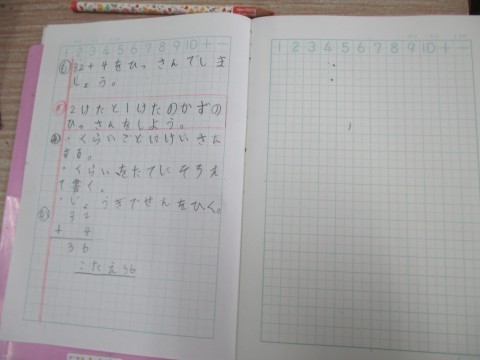 1 2 3 4 5 6 7 8 9 10 + −
1 2 3 4 5 6 7 8 9 10 + −
32+4をひっさんでしま
しょう。
2けたと1けたのかずの
ひっさんをしよう。
・くらいごとにけいさん
する。
・くらいをたてにそろえ
て書く。
・じょうぎでせんをひく。
32
+ 4
36
こたえ36